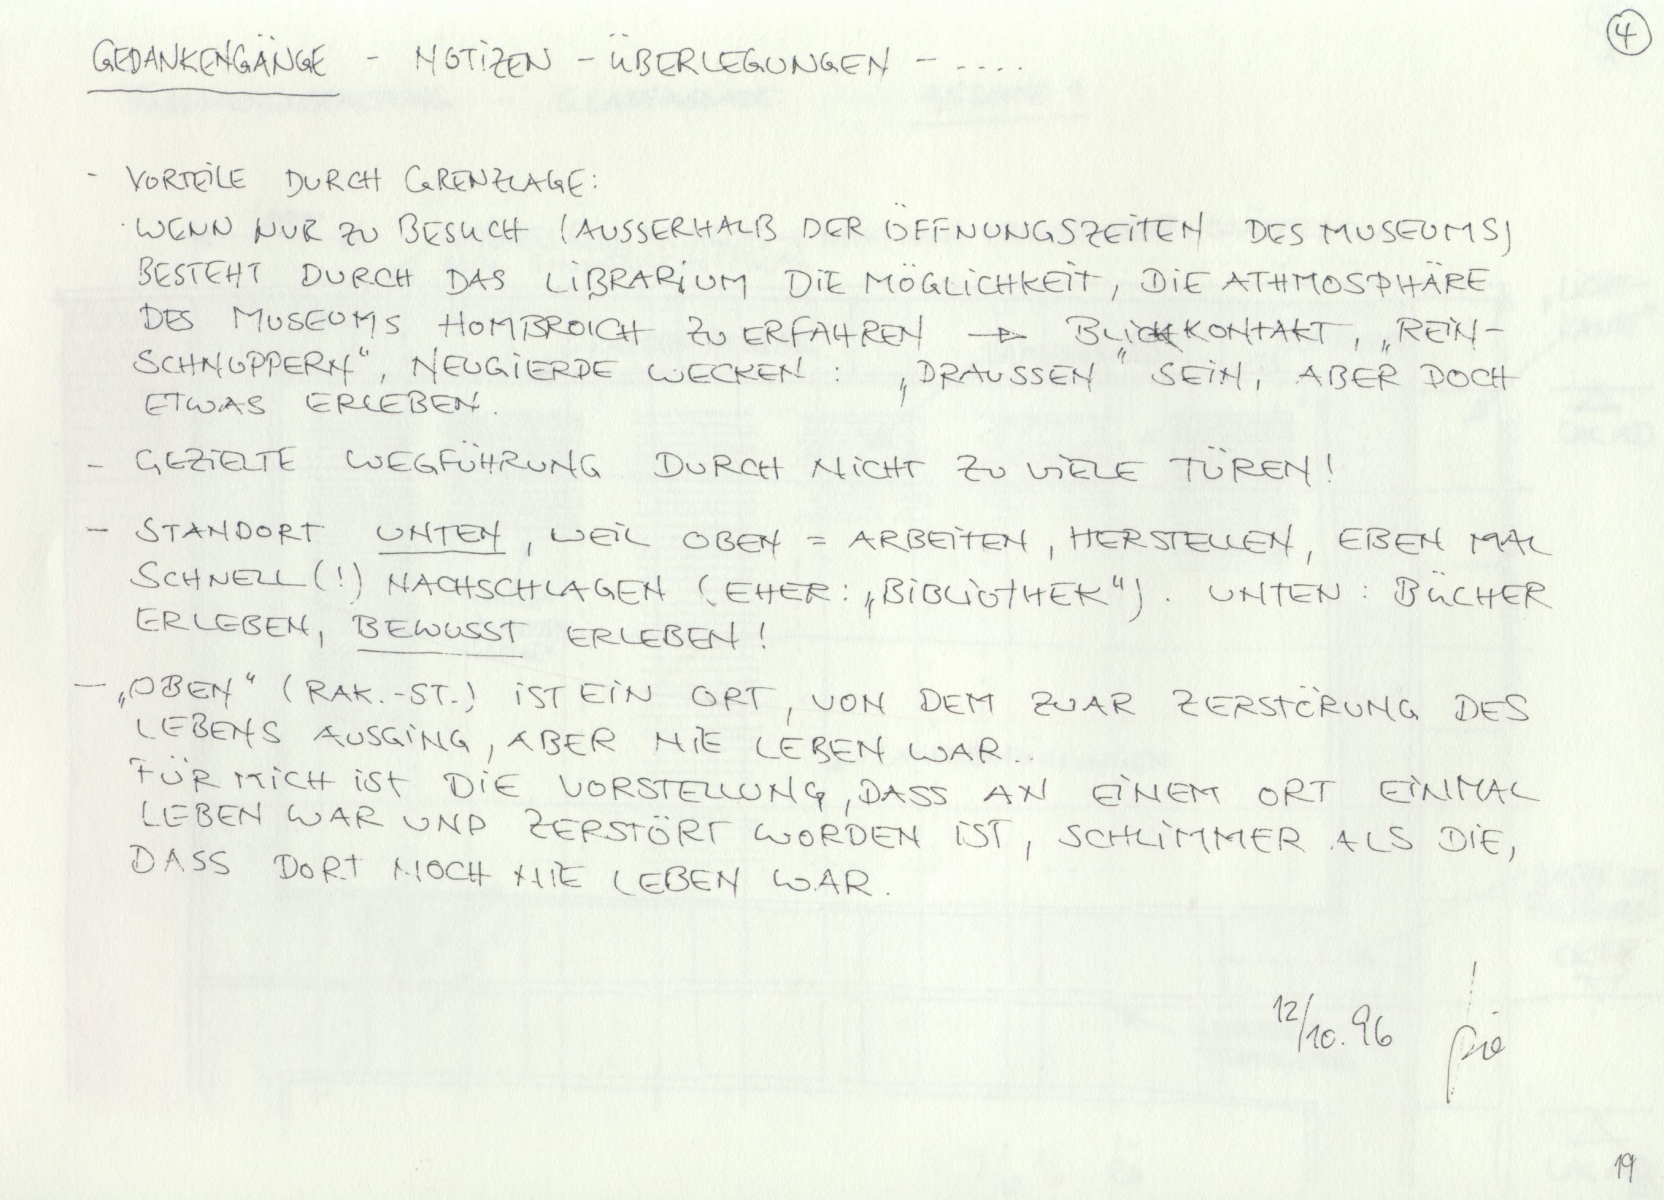 4
GEDANKENGÄNGE - NOTIZEN - ÜBERLEGUNGEN - ....
- VORTEILE DURCH GRENZLAGE:
WENN NUR ZU BESUCH (AUSSERHALB DER ÖFFNUNGSZEITEN DES MUSEUMS)
BESTEHT DURCH DAS LIBRARIUM DIE MÖGLICHKEIT, DIE ATHMOSPHÄRE
DES MUSEUMS HOMBROICH ZU ERFAHREN → BLICKKONTAKT, „REIN-
SCHNUPPERN“, NEUGIERDE WECKEN: „DRAUSSEN“ SEIN, ABER DOCH
ETWAS ERLEBEN.
- GEZIELTE WEGFÜHRUNG DURCH NICHT ZU VIELE TÜREN!
- STANDORT UNTEN, WEIL OBEN = ARBEITEN, HERSTELLEN, EBEN MAL
SCHNELL(!) NACHSCHLAGEN (EHER: „BIBLIOTHEK“). UNTEN: BÜCHER
ERLEBEN, BEWUSST ERLEBEN!
- „OBEN“ (RAK.-ST.) IST EIN ORT, VON DEM ZWAR ZERSTÖRUNG DES
LEBENS AUSGING, ABER NIE LEBEN WAR..
FÜR MICH IST DIE VORSTELLUNG, DASS AN EINEM ORT EINMAL
LEBEN WAR UND ZERSTÖRT WORDEN IST, SCHLIMMER ALS DIE,
DASS DORT NOCH NIE LEBEN WAR.
12/10.96
19